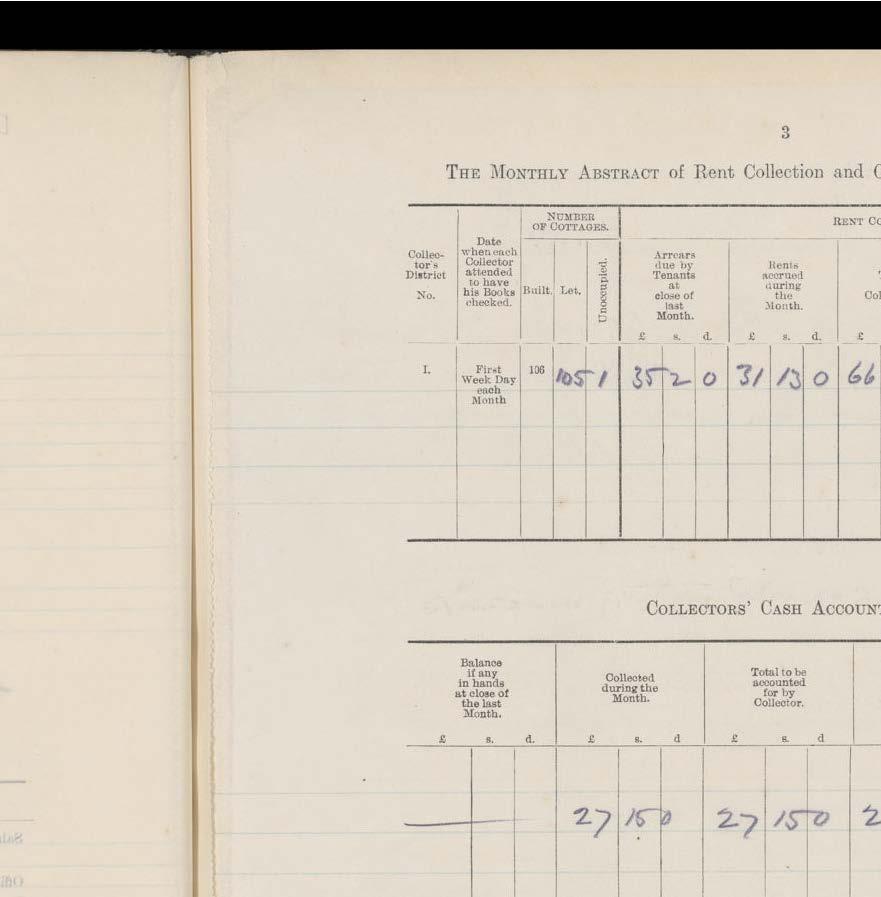 3
THE MONTHLY ABSTRACT of Rent Collection and
NUMBER OF COTTAGES.
RENT
Collec-
tor's
District
No.
Date
when each
Collector
attended
to have
his Books
checked.
Built.
Let.
Unoccupied.
Arrears
due by
Tenants
at
close of
last
Month.
£ s. d.
Rents
accrued
during
the
Month.
£ s. d.
£
I.
First
Week Day
each
Month
106 105 1 35 2 0 31 13 0 66
COLLECTORS' CASH
Balance
if any
in hands
at close of
the last
Month.
£ s. d.
Collected
during the
Month.
£ s. d
Total to be
accounted
for by
Collector.
£ s. d
27 15 0 27 15 0 2